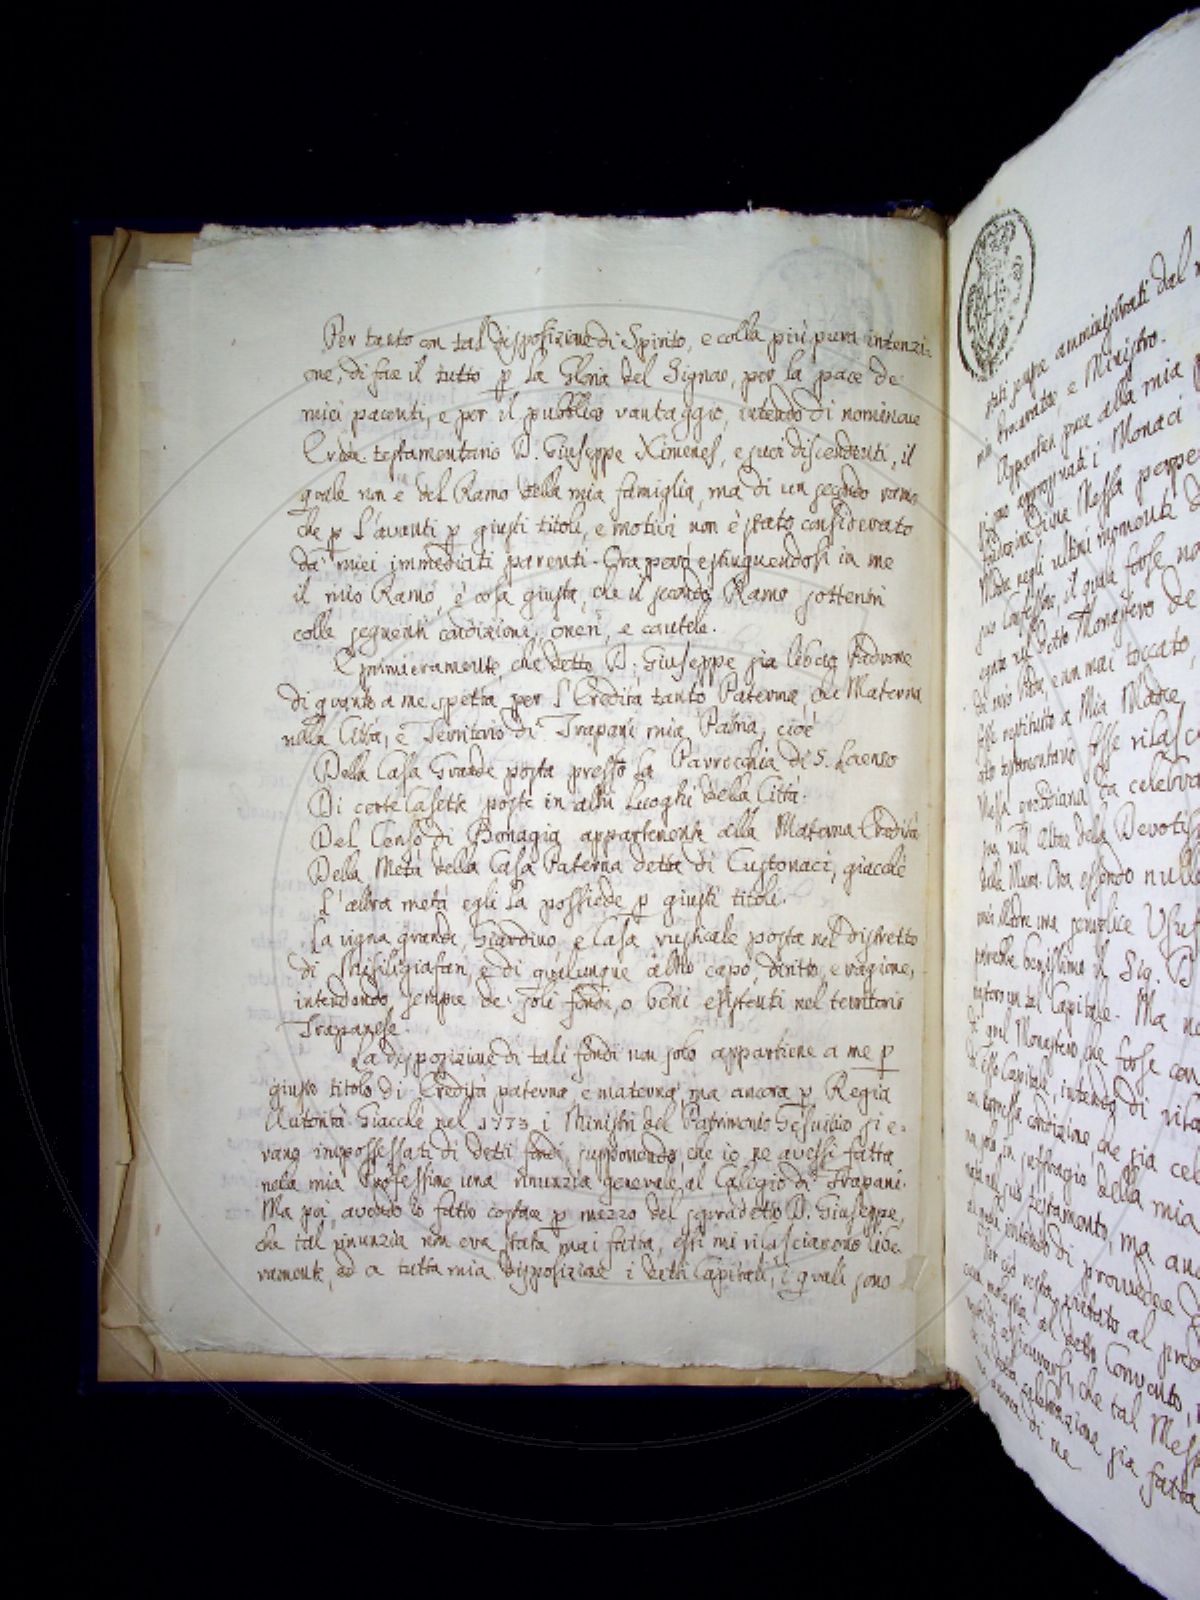 Per tanto con tal disposizione di Spirito, e colla più pura intenzi-
one, di fare il tutto p la Gloria del Signore, per la pace de'
miei parenti, e per il pubblico vantaggio, intendo di nominare
Erede testamentario D. Giuseppe Ximenes, e suoi discendenti, il
quale non è del Ramo della mia famiglia, ma di un secondo ramo
che p l'avanti p giusti titoli, e motivi non è stato considerato
da' miei immediati parenti. Ora però estinguendosi in me
il mio Ramo, è cosa giusta, che il secondo Ramo sottentri
colle seguenti condizioni, oneri, e cautele.
E primieramente, che detto D. Giuseppe sia libero Padrone
di quanto a me spetta per l'Eredità tanto Paterna, che Materna
nella Città, e Territorio di Trapani mia Patria, cioè
Della Casa Grande posta presso la Parrocchia di S. Lorenzo
Di certe Casette poste in altri Luoghi della Città.
Del Censo di Bonagia appartenente alla Materna Eredità
Della Metà della Casa Paterna detta di Custonaci, giacchè
l'altra metà egli la possiede p giusti titoli.
La vigna grande, Giardino, e Casa rusticale posta nel distretto
di Misiligiafari, e di qualunque altro capo, diritto, e ragione,
intendendo sempre de' soli fondi, o beni esistenti nel territorio
Trapanese.
La disposizione di tali fondi non solo appartiene a me p
giusto titolo di Eredità paterna, e materna, ma ancora p Regia
Autorità. Giacchè nel 1773 i Ministri del Patrimonio Gesuitico si e-
rano impossessati di detti fondi, supponendo, che io ne avessi fatta
nella mia Professione una rinunzia generale al Collegio di Trapani.
Ma poi, avendo io fatto costare p mezzo del sopradetto D. Giuseppe,
che tal rinunzia non era stata mai fatta, essi mi rilasciarono libe-
ramente, ed a tutta mia disposizione i detti Capitali, i quali sono
stati sempre amministrati dal
mio Procuratore, e Ministro.
Appartien pure alla mia
Monaci
una Messa
negli ultimi momenti
suo Confessore, il quale forse
detto Monastero de
di mio Padre, e non mai toccato,
fosse restituito a Mia Madre
testamentario fosse
Messa quotidiana da celebra
nell'Altare della
Ora essendo
mia Madre una semplice
benissimo il Sig. D
tal Capitale. Ma
quel Monastero, che forse
di esso Capitale, intendo di
espressa condizione, che sia
in suffragio della mia
suo testamento, ma
intendo di provvedere
Per ciò resta vietato al
molestia al detto Convento,
di assicurarsi, che tal
celebrazione sia fatta
ancora di me